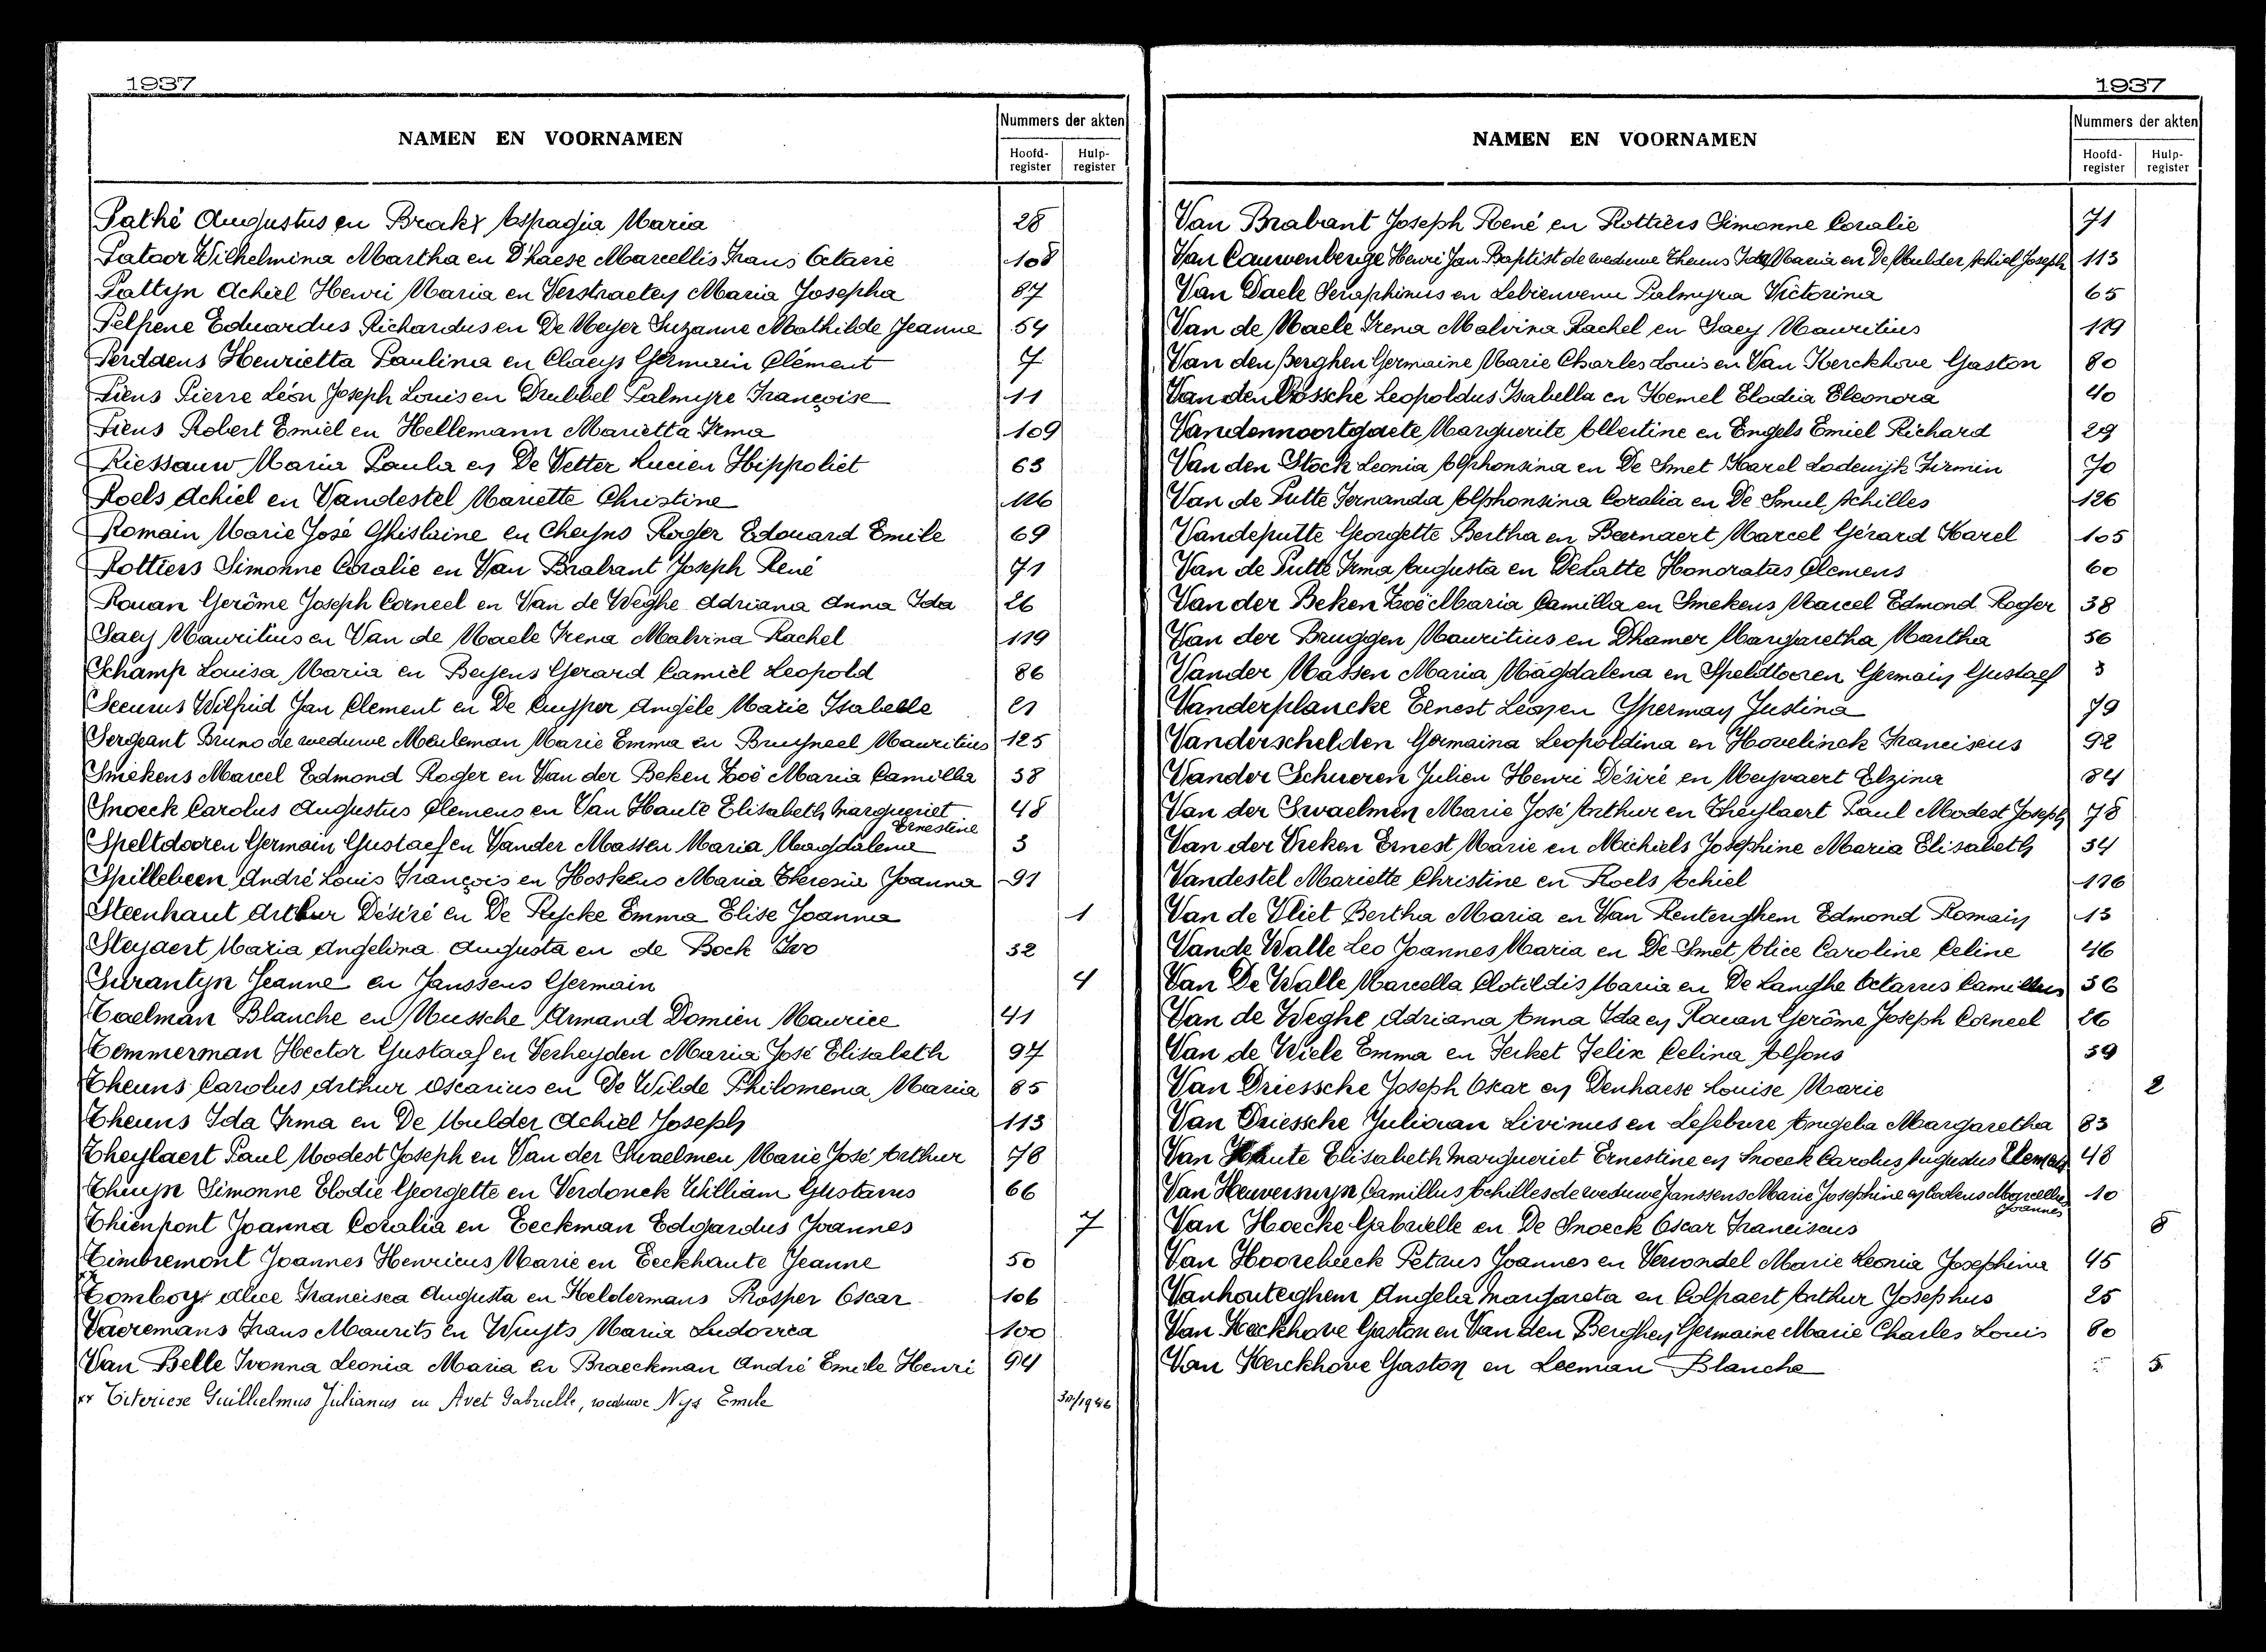 1937
NAMEN EN VOORNAMEN
Nummers der akten
Hoofd-register
Hulp-register
Pathé Augustus en Brakx Aspagia Maria 28
Pataor Wilhelmina Martha en D'haese Marcellis Frans Octavie 108
Pattijn Achiel Henri Maria en Verstraeten Maria Josepha 87
Pelfrene Eduardus Richardus en De Meyer Suzanne Mathilde Jeanne 54
Perdaens Henrietta Paulina en Claeys Germain Clément 7
Piens Pierre Léon Joseph Louis en Drubbel Palmyre Françoise 11
Piens Robert Emiel en Hellemann Marietta Irma 109
Riessauw Maria Paula en De Vetter Lucien Hippoliet 63
Roels Achiel en Vandestel Mariette Christine 116
Romain Marie José Ghislaine en Cheyns Roger Edouard Emile 69
Rottiers Simonne Coralie en Van Brabant Joseph René 71
Rouan Gerôme Joseph Corneel en Van de Weghe Adriana Anna Ida 26
Saey Mauritius en Van de Maele Irena Malvina Rachel 119
Schamp Louisa Maria en Beyens Gerard Camiel Leopold 86
Seeuws Wilfried Jan Clement en De Cuyper Angèle Marie Isabelle 21
Sergeant Bruno de weduwe Meuleman Marie Emma en Bruyneel Mauritius 125
Smekens Marcel Edmond Roger en Van der Beken Zoë Maria Camilla 38
Snoeck Carolus Augustus Clemens en Van Haute Elisabeth Margueriet Ernestine 48
Speltdooren Germain Gustaef en Vander Massen Maria Magdalena 3
Spillebeen André Louis François en Hoskens Maria Theresia Joanna 91
Steenhaut Arthur Désiré en De Rycke Emma Elise Joanna 1
Steyaert Maria Angelina Augusta en de Bock Ivo 32
Surantyn Jeanne en Janssens Germain 4
Taelman Blanche en Mussche Armand Domien Maurice 41
Temmerman Hector Gustaaf en Verheyden Maria José Elisabeth 97
Theuns Carolus Arthur Oscarius en De Wilde Philomena Maria 85
Theuns Ida Irma en De Mulder Achiel Joseph 113
Theylaert Paul Modest Joseph en Van der Swaelmen Marie José Arthur 78
Thuyn Simonne Elodie Georgette en Verdonck William Gustavus 66
Thienpont Joanna Coralia en Eeckman Edgardus Joannes 7
Timbremont Joannes Henricus Marie en Eeckhaute Jeanne 50
Tomboy Alice Francisca Augusta en Keldermans Prosper Oscar 106
Vaeremans Frans Maurits en Wuyts Maria Ludovica 100
Van Belle Ivonna Leonia Maria en Braeckman André Emile Henri 94
xx Citeriese Guilhelmus Julianus en Avet Gabrielle, weduwe Nys Emile 30/1946
1937
NAMEN EN VOORNAMEN
Nummers der akten
Hoofd-register
Hulp-register
Van Brabant Joseph René en Rottiers Simonne Coralie 71
Van Cauwenberge Henri Jan Baptist de weduwe Theuns Ida Maria en De Mulder Achiel Joseph 113
Van Daele Seraphinus en Lebienvenu Palmyra Victorina 65
Van de Maele Irena Malvina Rachel en Saey Mauritius 119
Van den Berghen Germaine Marie Charles Louis en Van Kerckhove Gaston 80
Van den Bossche Leopoldus Isabella en Hemel Elodia Eleonora 40
Vandennoortgaete Marguerite Albertine en Engels Emiel Richard 29
Van den Stock Leonia Alphonsina en De Smet Karel Lodewijk Firmin 70
Van de Putte Fernanda Alphonsina Coralia en De Smul Achilles 126
Vandeputte Georgette Bertha en Beernaert Marcel Gérard Karel 105
Van de Putte Irma Augusta en Delatte Honoratus Clemens 60
Van der Beken Zoë Maria Camilla en Smekens Marcel Edmond Roger 38
Van der Bruggen Mauritius en Dhamer Margaretha Martha 56
Vander Massen Maria Magdalena en Speldtooren Germain Gustaef 3
Vanderplancke Ernest Leon en Ghermay Justina 79
Vanderschelden Germaina Leopoldina en Hovelinck Franciscus 92
Vander Schueren Julien Henri Désiré en Meyvaert Elzina 84
Van der Swaelmen Marie José Arthur en Theylaert Paul Modest Joseph 78
Van der Vreken Ernest Marie en Michiels Josephine Maria Elisabeth 34
Vandestel Mariette Christine en Roels Achiel 116
Van de Vliet Bertha Maria en Van Renterghem Edmond Romain 13
Vande Walle Leo Joannes Maria en De Smet Alice Caroline Celine 46
Van De Walle Marcella Clotildis Maria en De Langhe Octavus Camillus 36
Van de Weghe Adriana Anna Ida en Rouan Gerôme Joseph Corneel 26
Van de Wiele Emma en Ferket Felix Celina Alfons 59
Van Driessche Joseph Oscar en Denhaese Louise Marie 2
Van Driessche Juliaan Livinus en Lefebure Angela Margaretha 83
Van Haute Elisabeth Margueriet Ernestine en Snoeck Carolus Augustus Clemens 48
Van Heuverswyn Camillus Achilles de weduwe Janssens Marie Josephine en Coolens Marcellus Joannes 10
Van Hoecke Gabrielle en De Snoeck Oscar Franciscus 8
Van Hoorebeeck Petrus Joannes en Verwondel Marie Leonia Josephina 45
Vanhouteghem Angela Margareta en Colpaert Arthur Josephus 25
Van Keckhove Gaston en Van den Berghen Germaine Marie Charles Louis 80
Van Kerckhove Gaston en Leeman Blanche 5